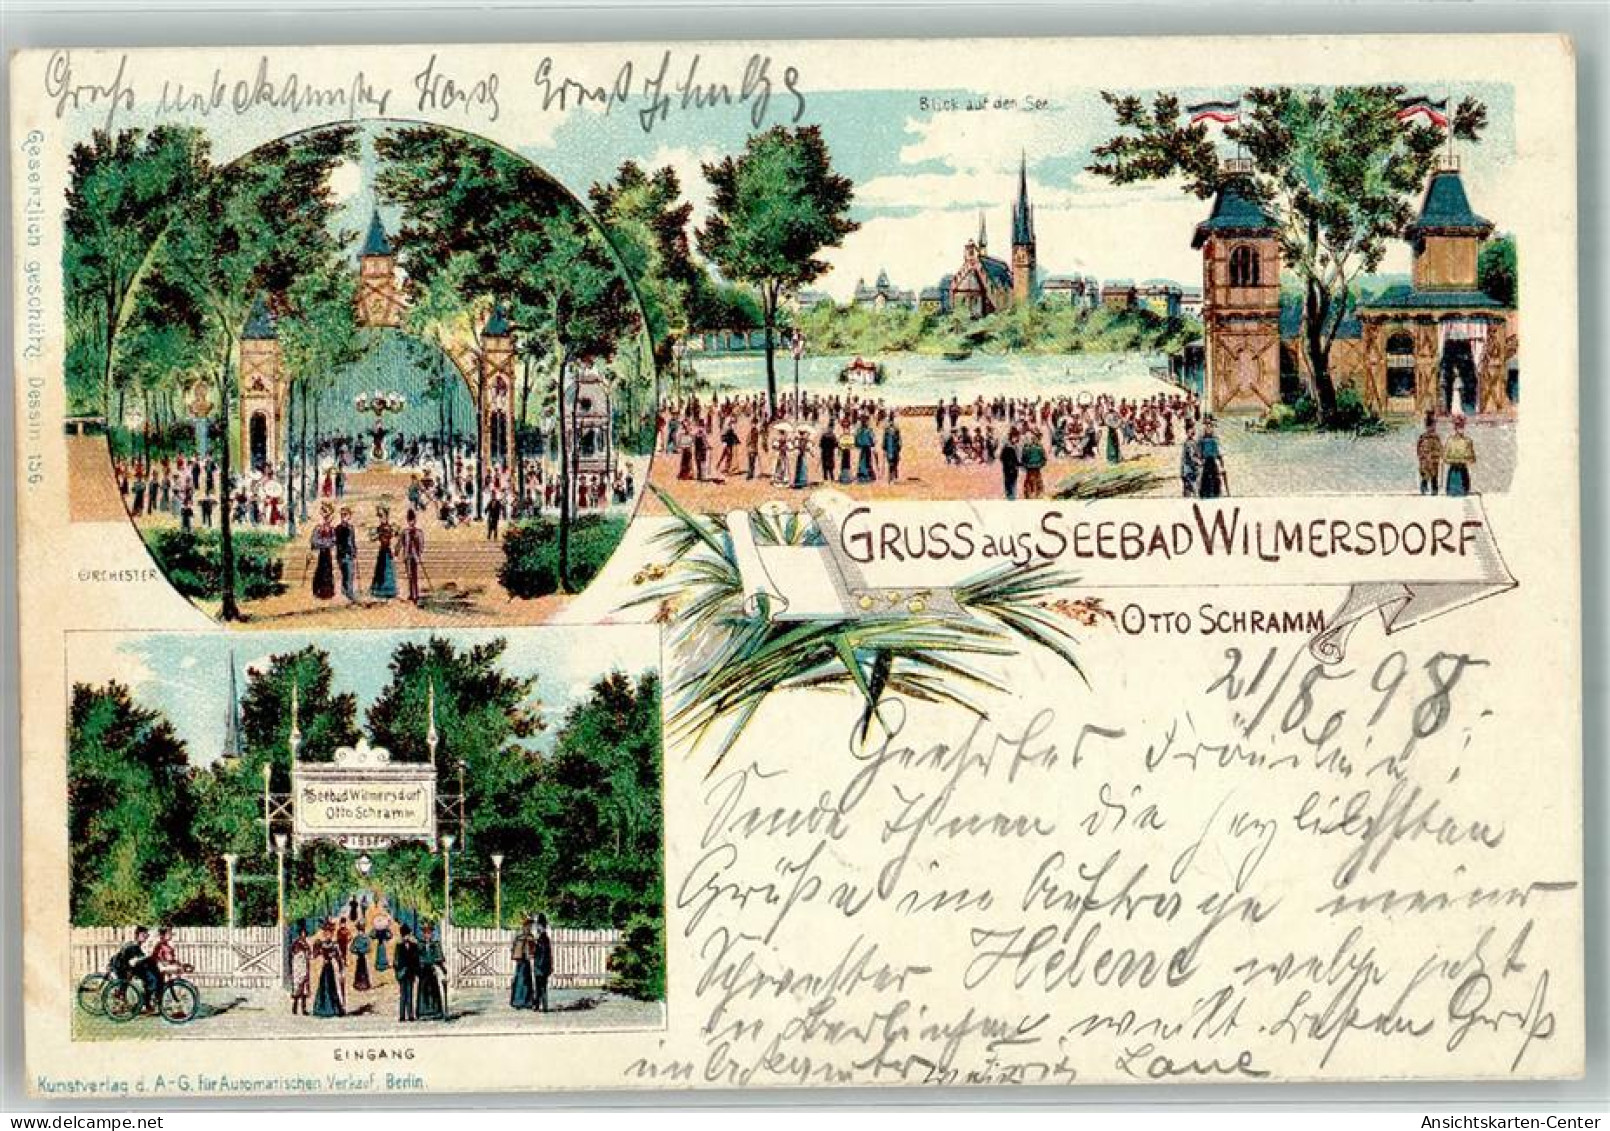 Gruß unbekannter Weise Ernst Schultze
Blick auf den See
Gesetzlich geschützt Dessin 156.
ORCHESTER
GRUSS aus SEEBAD WILMERSDORF
OTTO SCHRAMM
Seebad Wilmersdorf
Otto Schramm
EINGANG
Kunstverlag d. A-G. für Automatischen Verkauf, Berlin.
21/8. 98.
Geehrtes Fräulein!
Sende Ihnen die herzlichsten
Grüße im Auftrage meiner
Schwester Helene welche jetzt
in Berlin weilt. Besten Gruß
unbekannter
Ansichtskarten-Center